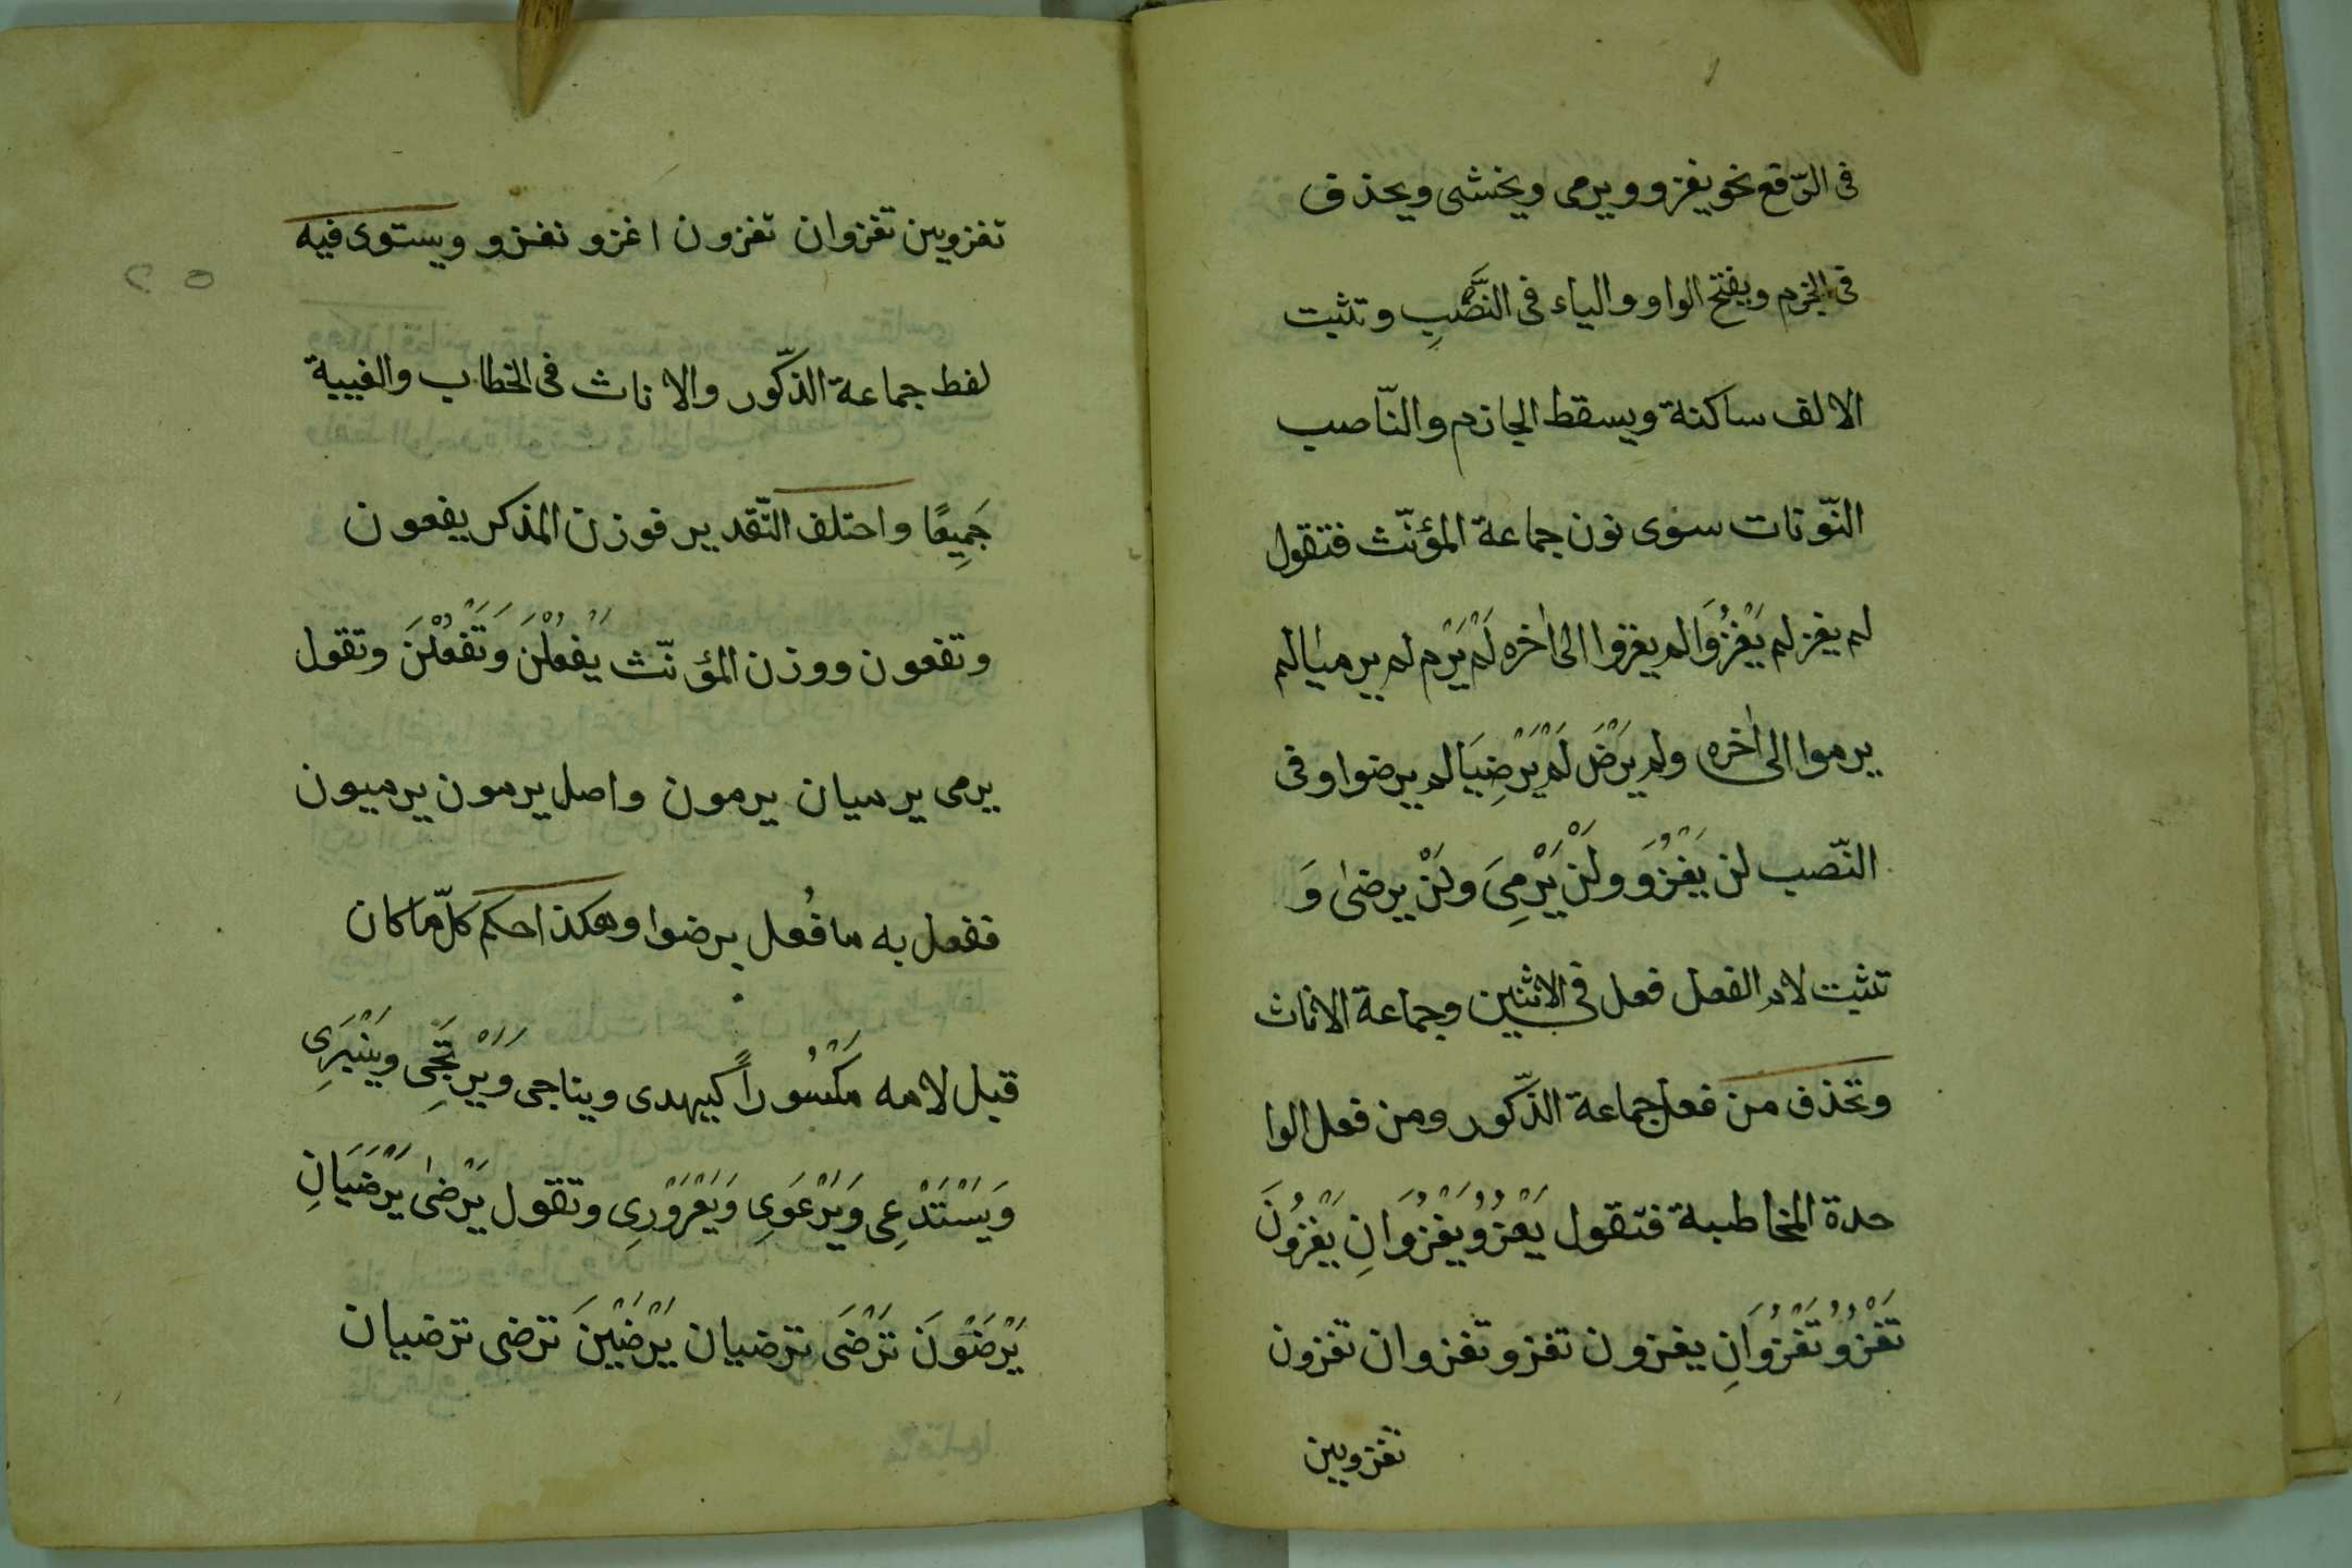 فى الرّفع نحو يغزو ويرمى ويخشى ويحذف
فى الجزم ويفتح الواو والياء فى النَّصْبِ وتثبت
الالف ساكنة ويسقط الجازم والنّاصب
النّونات سوى نون جماعة المؤنّث فتقول
لم يغز لم يَغْزُوَا لم يغزوا الى اٰخره لَمْ يَرْمِ لم يرميا لم
يرموا الى اٰخره ولم يَرْضَ لَمْ يَرْضِيَا لم يرضوا وفى
النّصب لن يَغْزُوَ ولَنْ يَرْمِىَ ولَنْ يرضىٰ وَ
تثبت لام الفعل فعل فى الاثنين وجماعة الاناث
وتحذف من فعل جماعة الذّكور ومن فعل الوا
حدة المخاطبة فتقول يَغْزُوُ يَغْزُوَانِ يَغْزُونَ
تَغْزُوُ تَغْزُوَانِ يغزون تغزو تغزوان تغزون
تغزوين
تغزوين تغزوان تغزون اغزو نغزو ويستوى فيه
لفط جماعة الذّكور والاناث فى الخطاب والغيبة
جَمِيعًا واختلف التّقدير فوزن المذكر يفعون
وتفعون ووزن المؤنّث يَفْعُلْنَ وَتَفْعُلْنَ وتقول
يرمى يرميان يرمون واصل يرمون يرميون
ففعل به ما فُعل يرضوا وهكذا حكم كلّ ما كان
قبل لامه مَكْسُوراً كيهدى ويناجى وَيَرْتَجِى ويَنْبَرِى
وَيَسْتَدْعِى وَيَرْعَوِى وَيَعْرَوْرِى وتقول يَرْضىٰ يَرْضَيَانِ
يَرْضَوْنَ تَرْضَى ترضيان يَرْضَيْنَ ترضى ترضيان